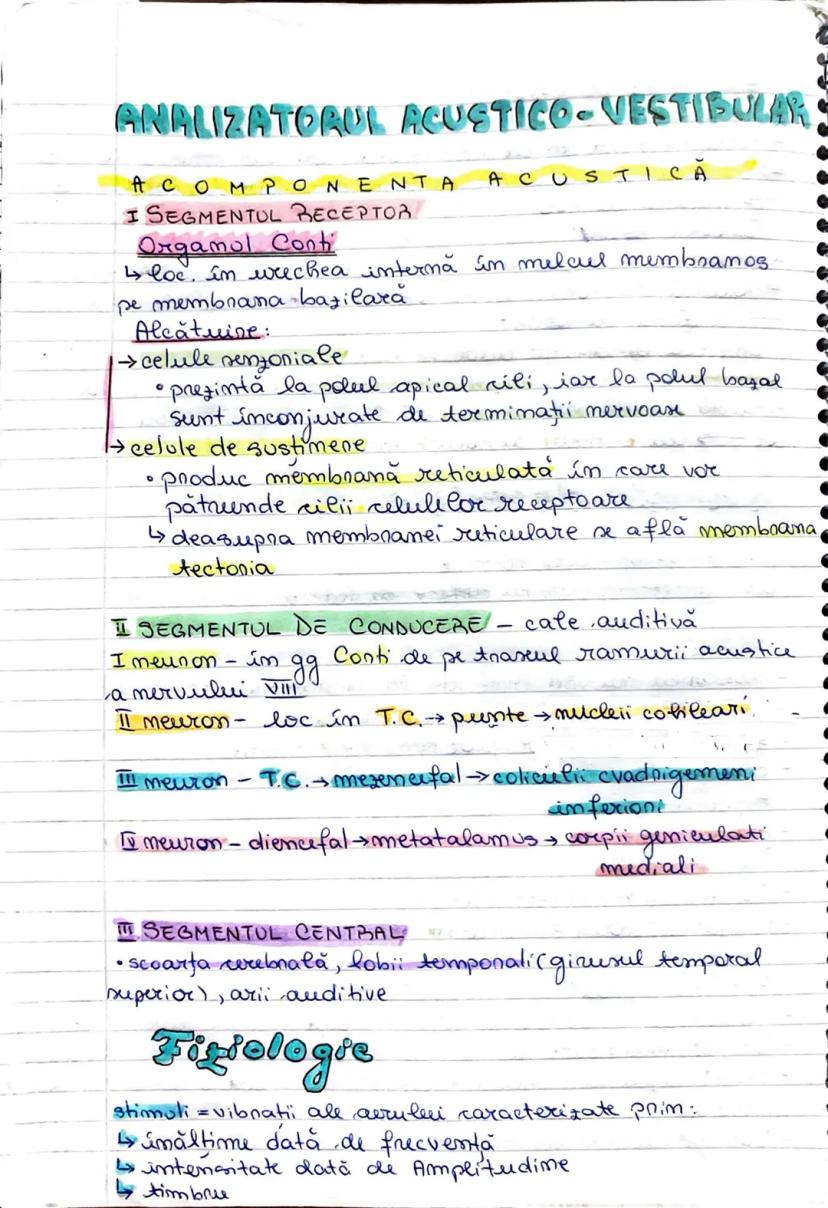 ANALIZATORUL ACUSTICO-VESTIBULAR
A COMPONENTA ACUSTICĂ
I SEGMENTUL RECEPTOR
Organul Corti
↳ loc. în urechea internă în melcul membranos
pe membrana bazilară
Alcătuire:
→ celule senzoriale
• prezintă la polul apical cili, iar la polul bazal
sunt înconjurate de terminații nervoase
→ celule de susținere
• produc membrană reticulată în care vor
pătrunde cilii celulelor receptoare
↳ deasupra membranei reticulare se află membrana
tectoria
II SEGMENTUL DE CONDUCERE - cale auditivă
I neuron - în gg Corti de pe traseul ramurii acustice
a nervului VIII
II neuron - loc în T.C. → punte → nucleii cohleari
III neuron - T.C. → mezencefal → coliculii cvadrigemeni
inferiori
IV neuron - diencefal → metatalamus → corpii geniculati
mediali
III SEGMENTUL CENTRAL
• scoarța cerebrală, lobii temporali (girusul temporal
superior), arii auditive
Fiziologie
stimuli = vibrații ale aerului caracterizate prin:
↳ înălțime dată de frecvență
↳ intensitate dată de Amplitudine
↳ timbru